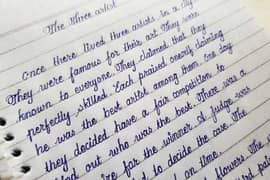 The three artist
Once there lived three artists in a city.
They were famous for their art. They were
known to everyone. They claimed that they
perfectly skilled. Each praised oneself claiming
he was the best artist among them. One day
they decided have a fair competition to
out who was the best. There was a
for the winner. A judge was
to decide the case. The
on time.
flowers. The